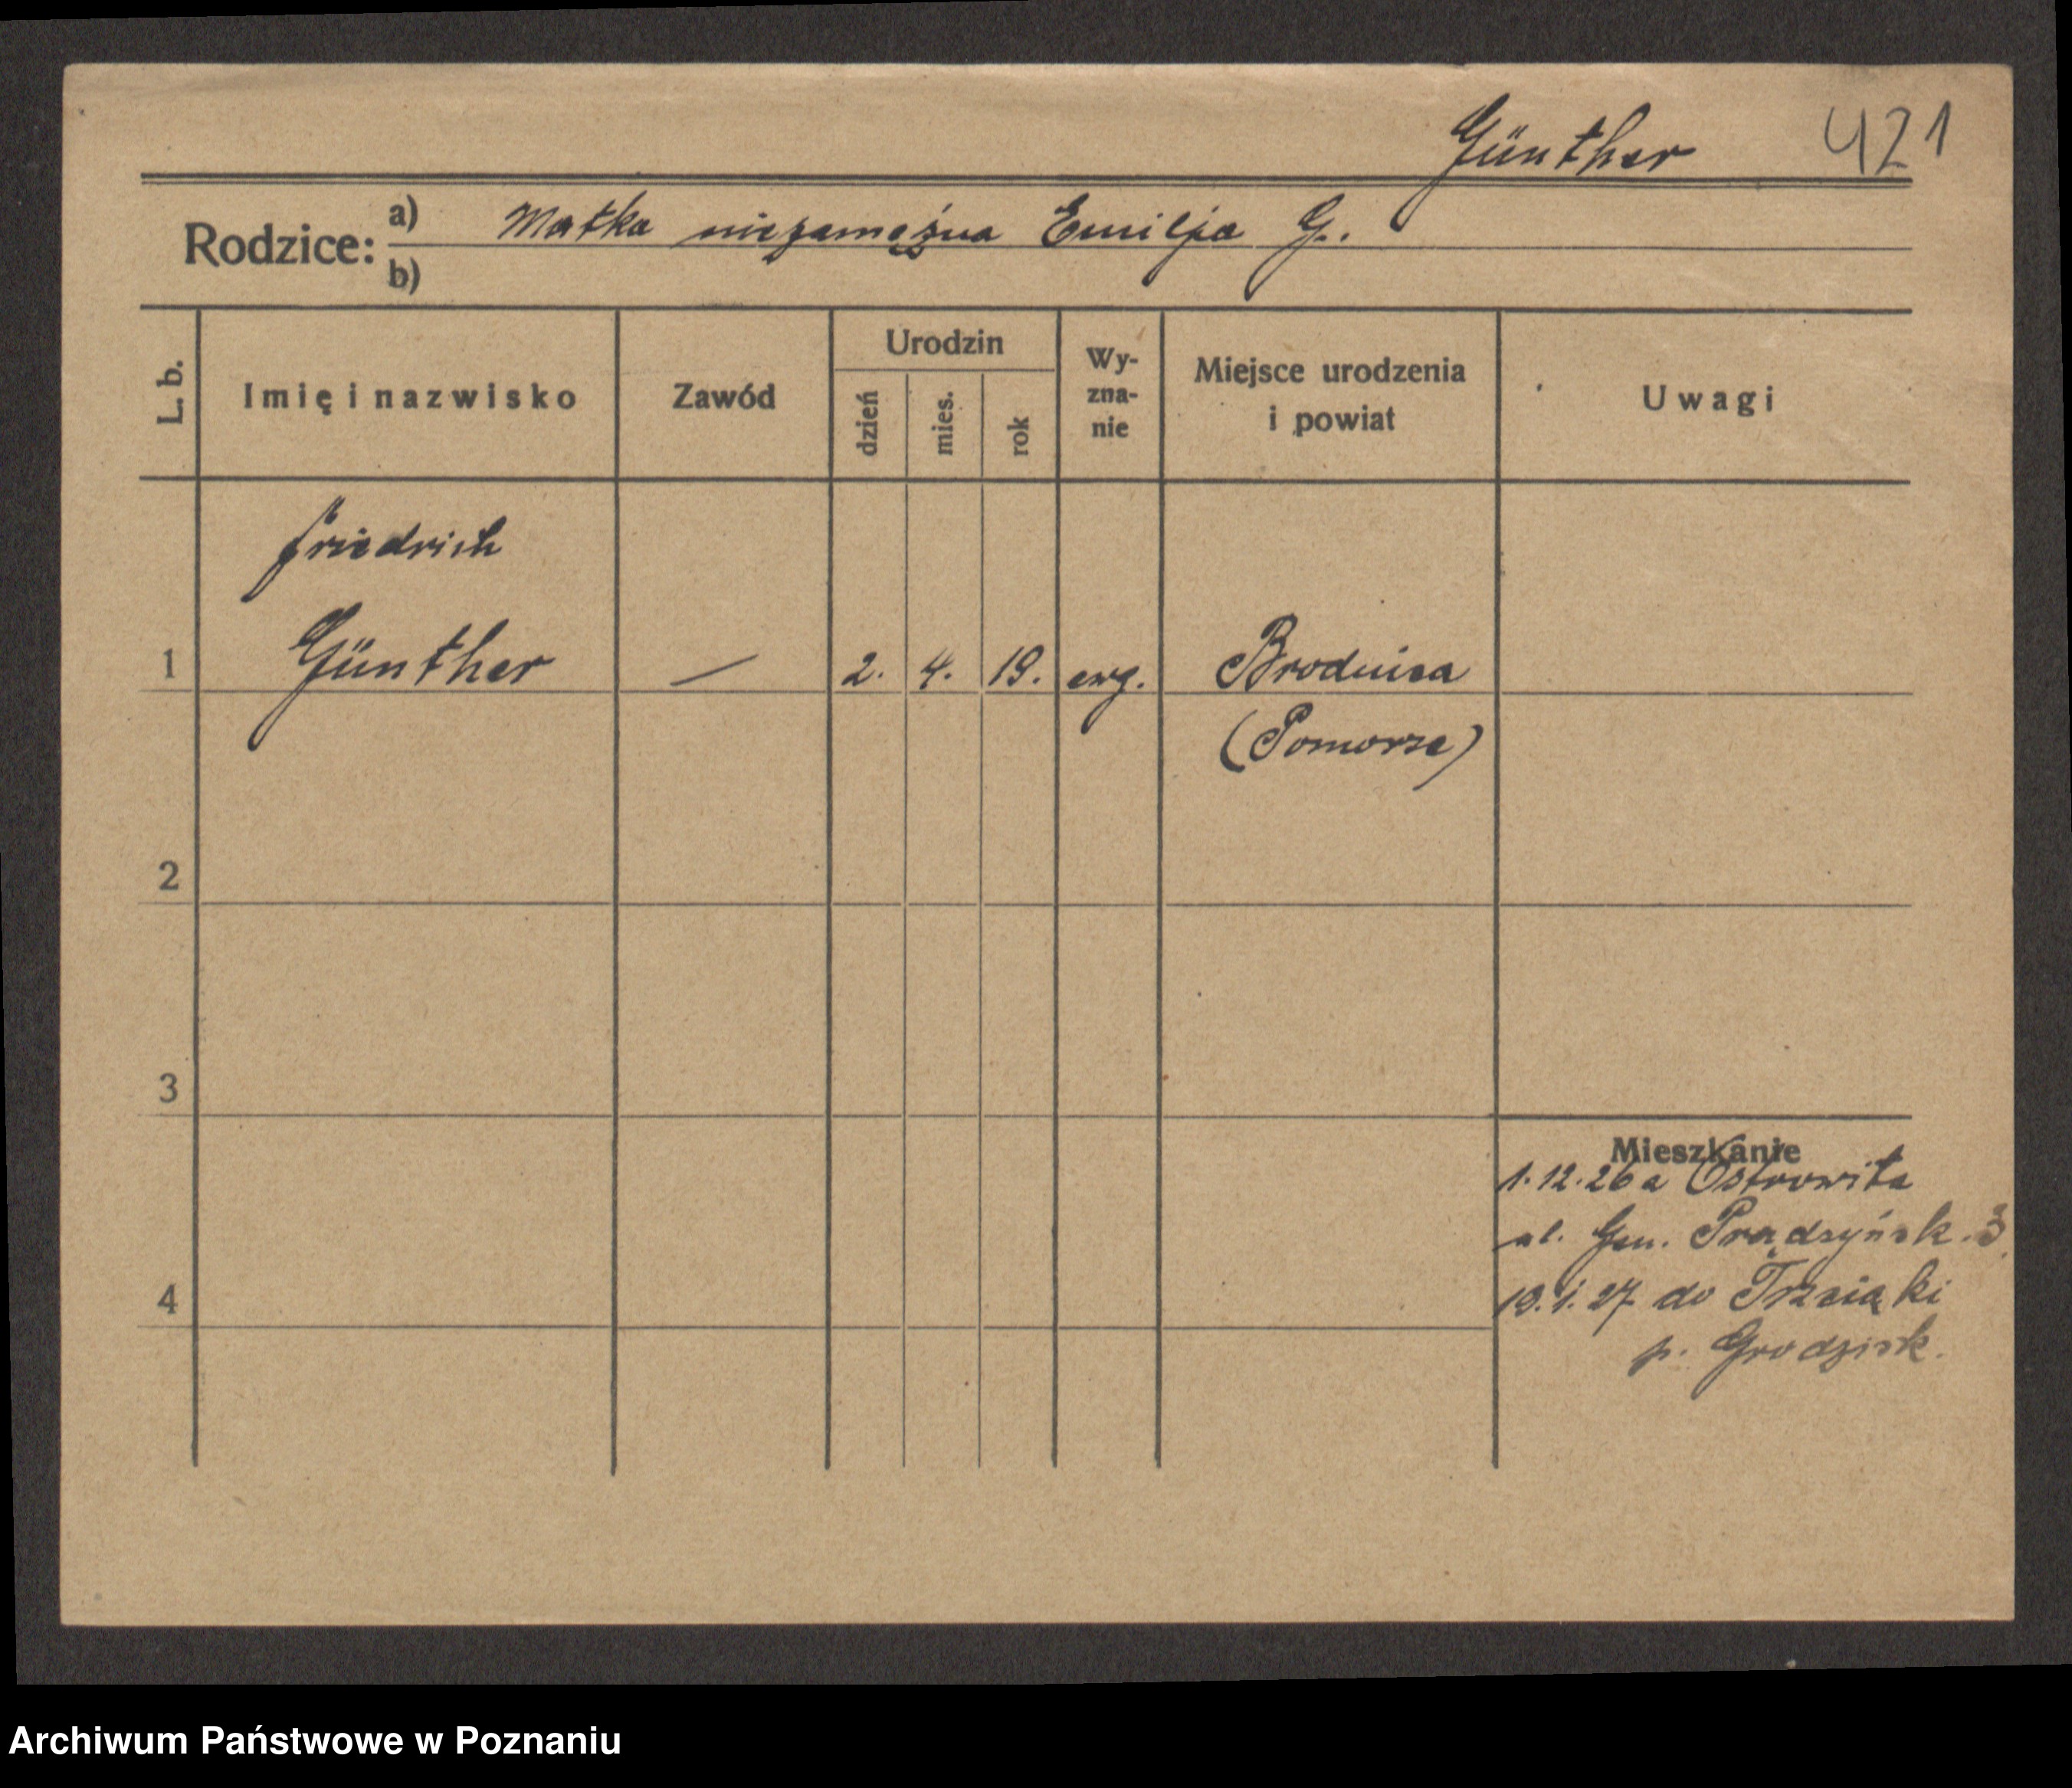 Günther 421
Rodzice: a) Matka niezamężna Emilja G.
b)
L. b. Imię i nazwisko Zawód Urodzin dzień mies. rok Wy-zna-nie Miejsce urodzenia i powiat Uwagi
Friedrich
1 Günther — 2. 4. 19. ewg. Brodnica
(Pomorze)
2
3
Mieszkanie
1.12.26 a Ostrowita
ul. Gen. Prądzyńsk. 3
4 19.1.27 do Trzcianki
p. Grodzisk.
Archiwum Państwowe w Poznaniu